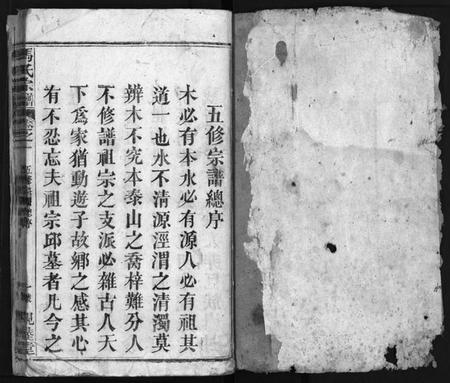 五修宗譜總序
木必有本水必有源人必有祖其
道一也水不清源涇渭之清濁莫
辨木不究本泰山之喬梓難分人
不修譜祖宗之支派必雜古人天
下爲家猶動遊子故鄉之感其心
有不忍忘夫祖宗邱墓者凡今之
馬氏宗譜